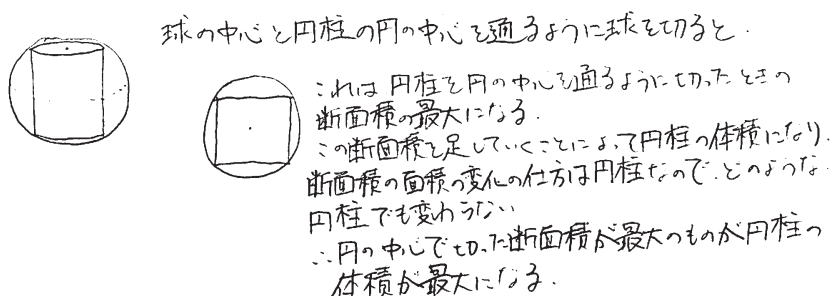 球の中心と円柱の円の中心を通るように球を切ると.
これは円柱を円の中心を通るように切ったときの
断面積の最大になる.
この断面積を足していくことによって円柱の体積になり.
断面積の面積の変化の仕方は円柱なので、どのような
円柱でも変わらない
∴円の中心で切った断面積が最大のものが円柱の
体積が最大になる.